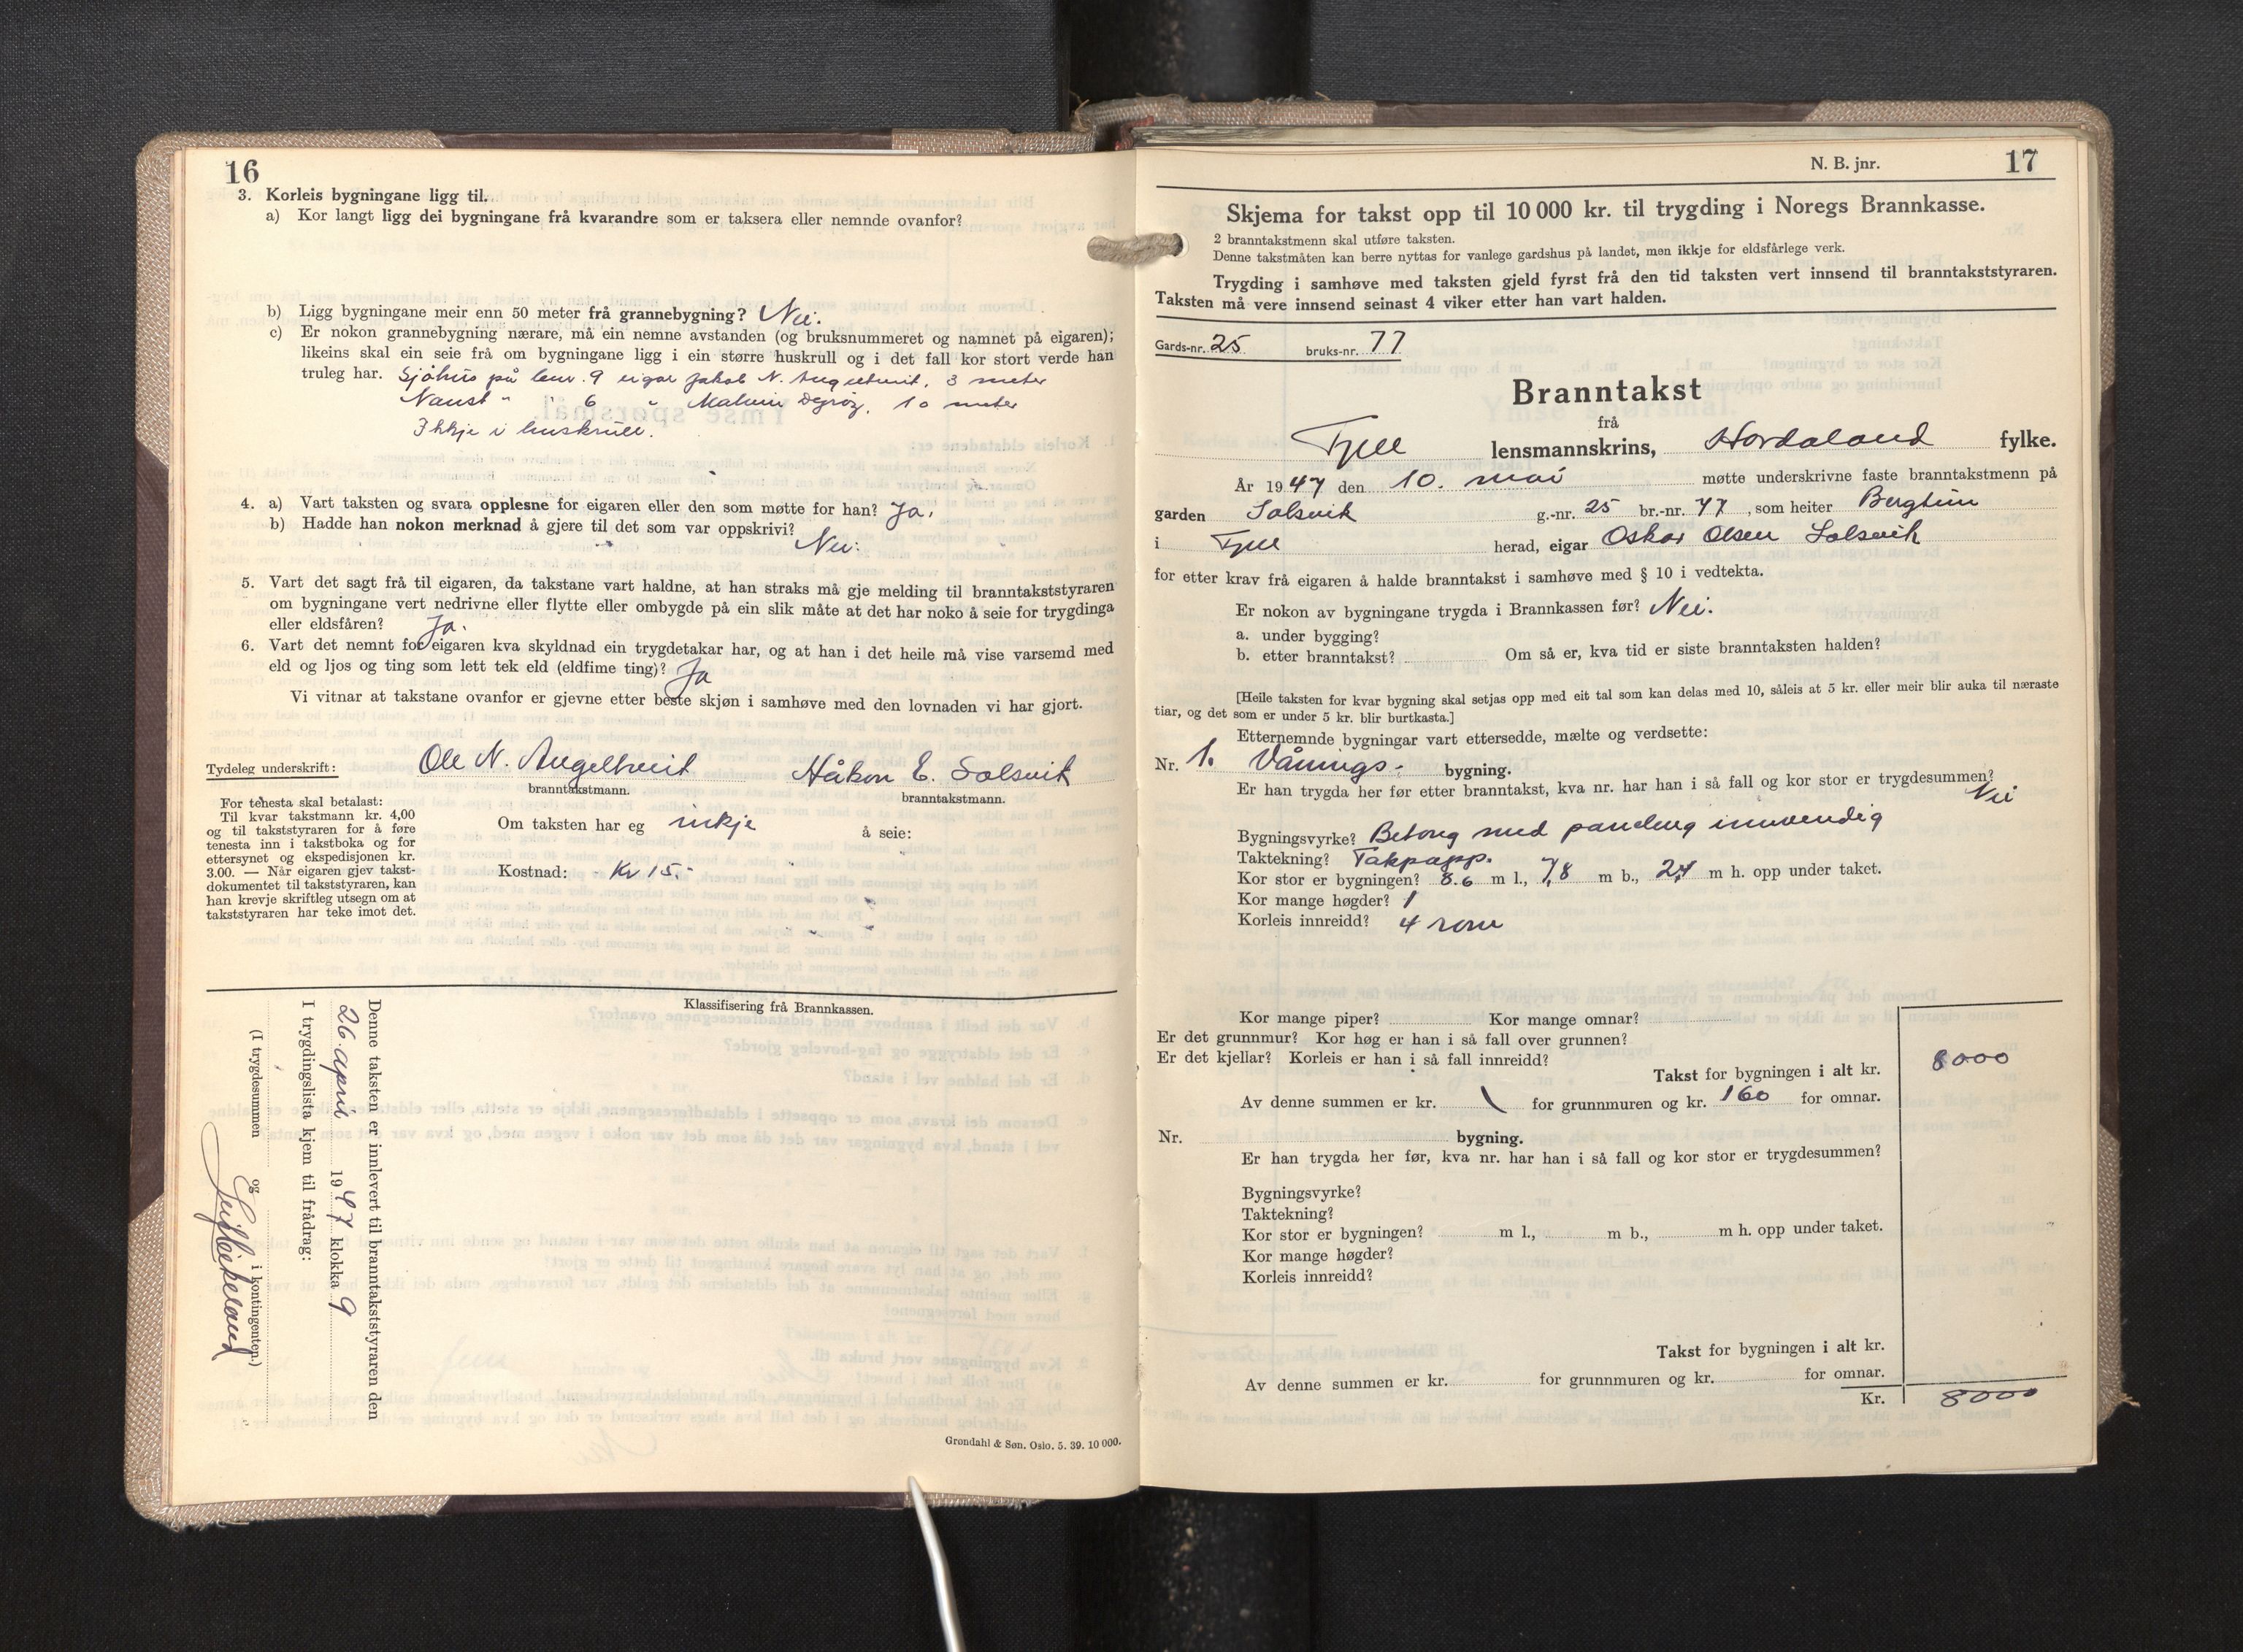 16
3. Korleis bygningane ligg til.
a) Kor langt ligg dei bygningane frå kvarandre som er taksera eller nemnde ovanfor?
b) Ligg bygningane meir enn 50 meter frå grannebygning? Nei.
c) Er nokon grannebygning nærare, må ein nemne avstanden (og bruksnummeret og namnet på eigaren);
likeins skal ein seie frå om bygningane ligg i ein større huskrull og i det fall kor stort verde han
truleg har. Sjöhus på bnr. 9 eigar Jakob N. Angeltveit, 3 meter
Naust " " 6 " Malvin Dyrøy, 10 meter
Ikkje i huskrull.
4. a) Vart taksten og svara opplesne for eigaren eller den som møtte for han? Ja.
b) Hadde han nokon merknad å gjere til det som var oppskrivi? Nei.
5. Vart det sagt frå til eigaren, da takstane vart haldne, at han straks må gje melding til branntakststyraren
om bygningane vert nedrivne eller flytte eller ombygde på ein slik måte at det har noko å seie for trygdinga
eller eldsfåren? Ja.
6. Vart det nemnt for eigaren kva skyldnad ein trygdetakar har, og at han i det heile må vise varsemd med
eld og ljos og ting som lett tek eld (eldfime ting)? Ja
Vi vitnar at takstane ovanfor er gjevne etter beste skjøn i samhøve med den lovnaden vi har gjort.
Tydeleg underskrift: Ole N. Angeltveit Håkon E. Solsvik
branntakstmann. branntakstmann.
For tenesta skal betalast:
Til kvar takstmann kr. 4,00
og til takststyraren for å føre
tenesta inn i takstboka og for
ettersynet og ekspedisjonen kr.
3.00. — Når eigaren gjev takst-
dokumentet til takststyraren, kan
han krevje skriftleg utsegn om at
takststyraren har teke imot det.
Om taksten har eg inkje å seie:
Kostnad: Kr 15.-
Klassifisering frå Brannkassen.
Denne taksten er innlevert til branntakststyraren den
26. april 1947 klokka 9
I trygdingslista kjem til frådrag:
(I trygdesummen og i kontingenten.)
Grøndahl & Søn. Oslo. 5. 39. 10 000.
N. B. jnr. 17
Skjema for takst opp til 10 000 kr. til trygding i Noregs Brannkasse.
2 branntakstmenn skal utføre taksten.
Denne takstmåten kan berre nyttas for vanlege gardshus på landet, men ikkje for eldsfårlege verk.
Trygding i samhøve med taksten gjeld fyrst frå den tid taksten vert innsend til branntakststyraren.
Taksten må vere innsend seinast 4 viker etter han vart halden.
Gards-nr. 25 bruks-nr. 77
Branntakst
frå
Fjell lensmannskrins, Hordaland fylke.
År 1947 den 10. mai møtte underskrivne faste branntakstmenn på
garden Solsvik g.-nr. 25 br.-nr. 77, som heiter Bergheim
i Fjell herad, eigar Oskar Olsen Solsvik
for etter krav frå eigaren å halde branntakst i samhøve med § 10 i vedtekta.
Er nokon av bygningane trygda i Brannkassen før? Nei.
a. under bygging?
b. etter branntakst? Om så er, kva tid er siste branntaksten halden?
[Heile taksten for kvar bygning skal setjas opp med eit tal som kan delas med 10, såleis at 5 kr. eller meir blir auka til næraste
tiar, og det som er under 5 kr. blir burtkasta.]
Etternemnde bygningar vart ettersedde, mælte og verdsette:
Nr. 1. Vånings- bygning.
Er han trygda her før etter branntakst, kva nr. har han i så fall og kor stor er trygdesummen? Nei
Bygningsvyrke? Betong med paneling innvendig
Taktekning? Takpapp.
Kor stor er bygningen? 8.6 m l., 7,8 m b., 2,7 m h. opp under taket.
Kor mange høgder? 1
Korleis innreidd? 4 rom
Kor mange piper? Kor mange omnar?
Er det grunnmur? Kor høg er han i så fall over grunnen?
Er det kjellar? Korleis er han i så fall innreidd?
Takst for bygningen i alt kr. 8000
Av denne summen er kr. \ for grunnmuren og kr. 160 for omnar.
Nr. bygning.
Er han trygda her før, kva nr. har han i så fall og kor stor er trygdesummen?
Bygningsvyrke?
Taktekning?
Kor stor er bygningen? m l., m b., m h. opp under taket.
Kor mange høgder?
Korleis innreidd?
Takst for bygningen i alt kr.
Av denne summen er kr. for grunnmuren og kr. for omnar.
Kr. 8000